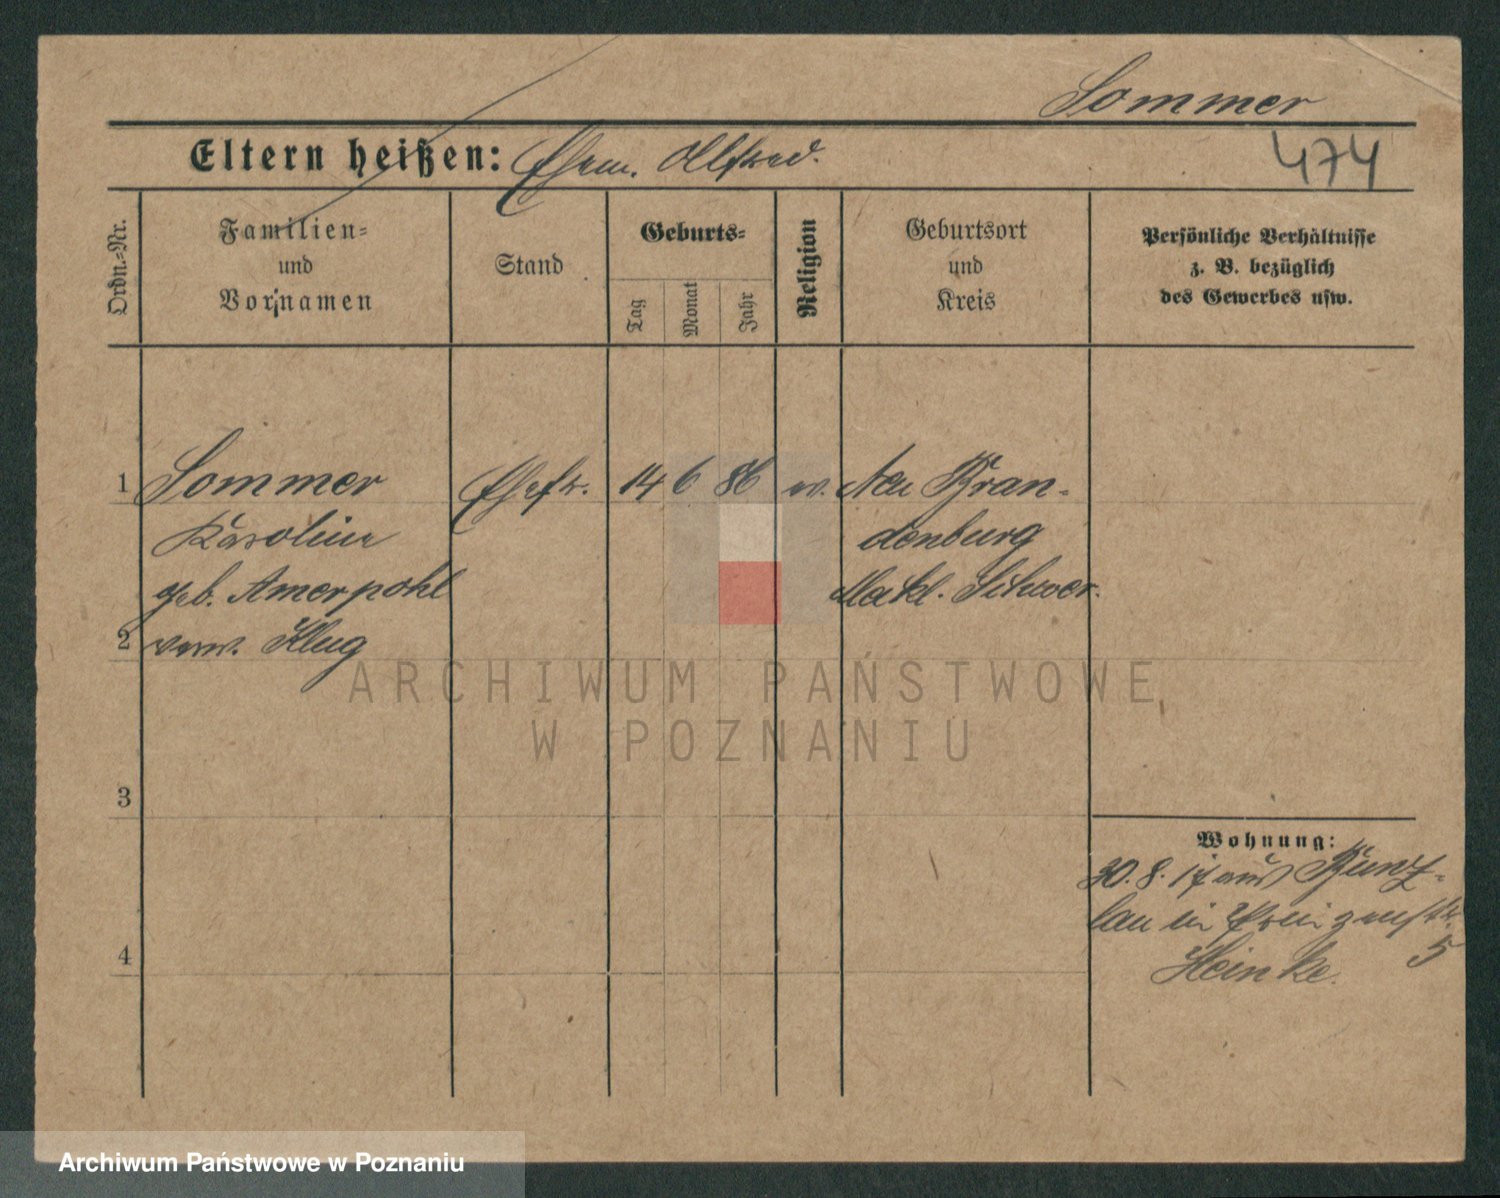 Sommer
474
Eltern heißen: Ehem. Alfred.
Ordn.-Nr.
Familien-
und
Vornamen
Stand
Geburts-
Tag
Monat
Jahr
Religion
Geburtsort
und
Kreis
Persönliche Verhältnisse
z. B. bezüglich
des Gewerbes usw.
1 Sommer Ehefr. 14 6 86 ev. Neu Bran-
Karoline denburg
geb. Amerpohl Meckl. Schwer.
2 verw. Klug
3
4
Wohnung:
30. 8. 17 aus Bunz-
lau in
Heinke. 5
ARCHIWUM PAŃSTWOWE
W POZNANIU
Archiwum Państwowe w Poznaniu